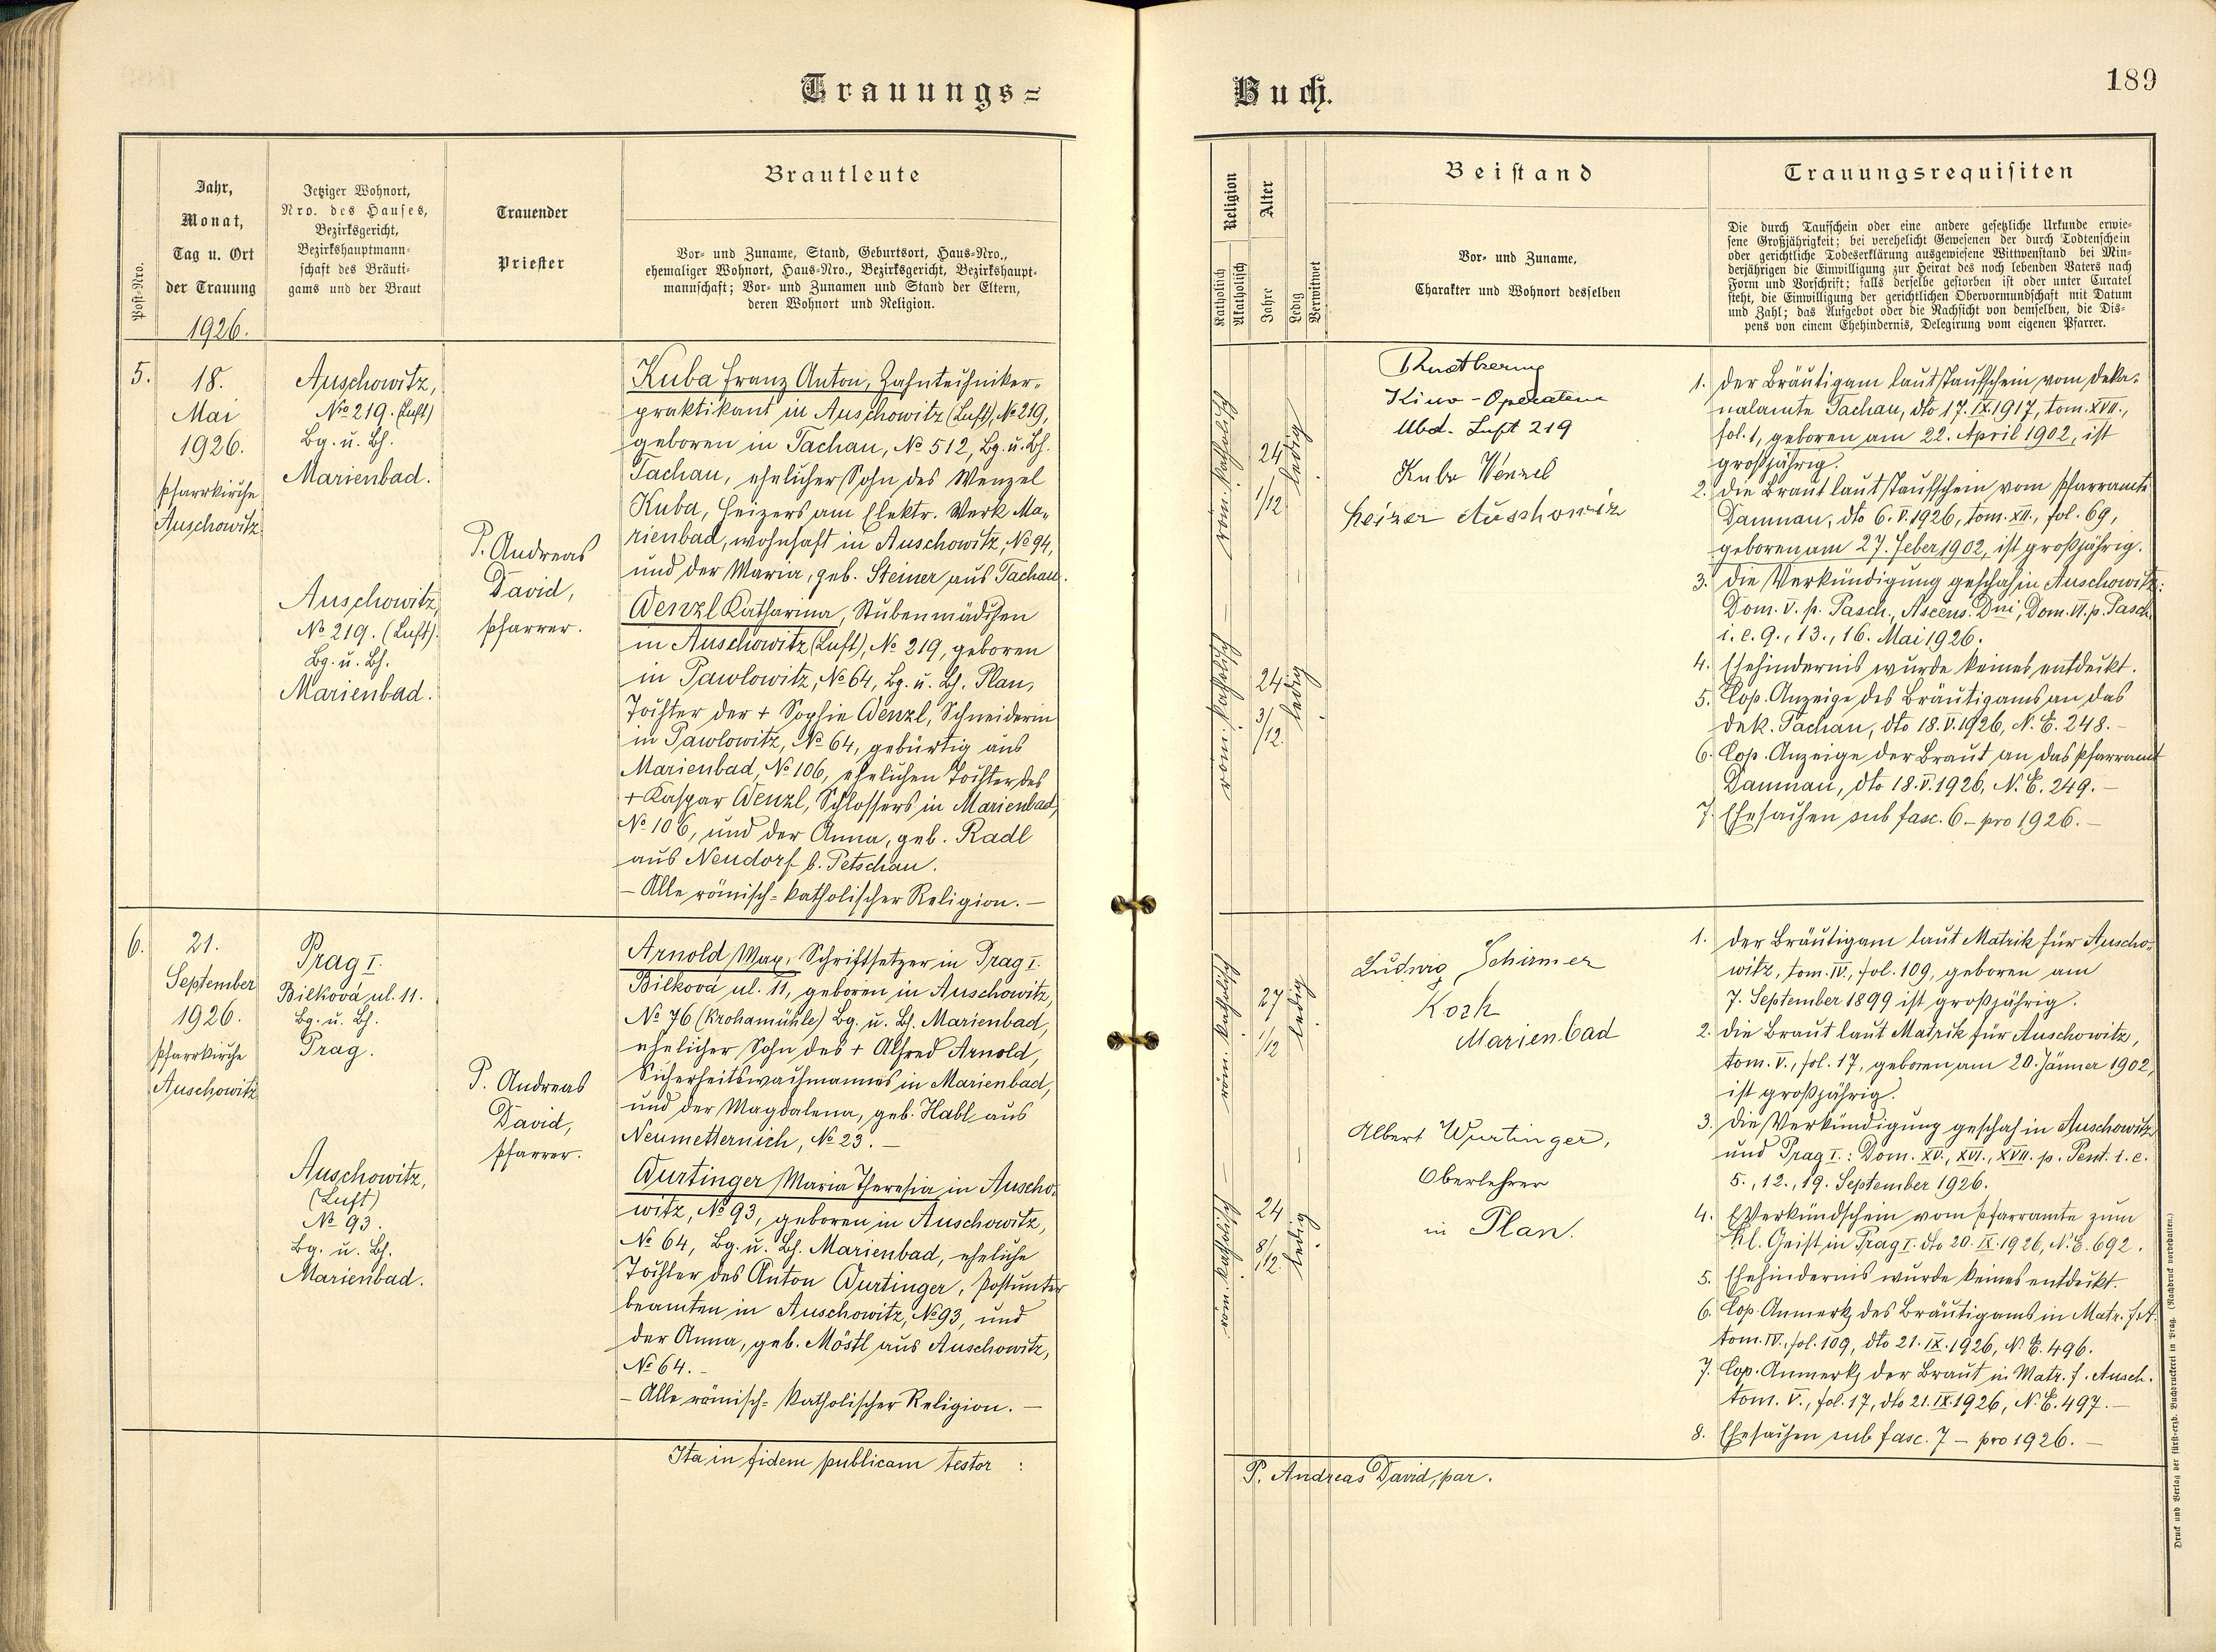 Trauungs=
Buch.
189
Post-Nro.
Jahr,
Monat,
Tag u. Ort
der Trauung
1926.
Jetziger Wohnort,
Nro. des Hauses,
Bezirksgericht,
Bezirkshauptmann-
schaft des Bräuti-
gams und der Braut
Trauender
Priester
Brautleute
Vor- und Zuname, Stand, Geburtsort, Haus-Nro.,
ehemaliger Wohnort, Haus-Nro., Bezirksgericht, Bezirkshaupt-
mannschaft; Vor- und Zunamen und Stand der Eltern,
deren Wohnort und Religion.
Religion
Katholisch
Akatholisch
Alter
Jahre
Ledig
Verwitwet
Beistand
Vor- und Zuname,
Charakter und Wohnort desselben
Trauungsrequisiten
Die durch Taufschein oder eine andere gesetzliche Urkunde erwie-
sene Großjährigkeit; bei verehelicht Gewesenen der durch Todtenschein
oder gerichtliche Todeserklärung ausgewiesene Wittwenstand bei Min-
derjährigen die Einwilligung zur Heirat des noch lebenden Vaters nach
Form und Vorschrift; falls derselbe gestorben ist oder unter Curatel
steht, die Einwilligung der gerichtlichen Obervormundschaft mit Datum
und Zahl; das Aufgebot oder die Nachsicht von demselben, die Dis-
pens von einem Ehehindernis, Delegirung vom eigenen Pfarrer.
5.
18.
Mai
1926.
Pfarrkirche
Auschowitz
Auschowitz,
Nro 219. (Luft)
Bg. u. Bh.
Marienbad.
Auschowitz,
No 219. (Luft).
Bg. u. Bh.
Marienbad.
P. Andreas
David,
Pfarrer.
Kuba Franz Anton, Zahntechniker-
praktikant in Auschowitz (Luft), No 219,
geboren in Tachau, No 512, Bg. u. Bh.
Tachau, ehelicher Sohn des Wenzel
Kuba, Heizers am Elektr. Werk Ma-
rienbad, wohnhaft in Auschowitz, No 94,
und der Maria, geb. Steiner aus Tachau.
Wenzl Katharina, Stubenmädchen
in Auschowitz (Luft), No 219, geboren
in Pawlowitz, No 64, Bg. u. Bh. Plan,
Tochter der + Sophie Wenzl, Schneiderin
in Pawlowitz, No 64, gebürtig aus
Marienbad, No 106, ehelichen Tochter des
+ Kaspar Wenzl, Schlossers in Marienbad,
No 106, und der Anna, geb. Radl
aus Neudorf b. Petschau.
– Alle römisch-katholischer Religion. –
röm. katholisch
24
1/12
ledig
röm. katholisch
24
3/12
ledig
Kino-Operateur
Ubd. Luft 219
Kuba Wenzel
Heizer Auschowiz
1. Der Bräutigam laut Taufschein vom Deka-
nalamte Tachau, dto 17. IX. 1917, tom. XVII.,
fol. 1, geboren am 22. April 1902, ist
großjährig.
2. Die Braut laut Taufschein vom Pfarramte
Damnau, dto 6. V. 1926, tom. XII., fol. 69,
geboren am 27. Feber 1902, ist großjährig.
3. Die Verkündigung geschah in Auschowitz:
Dom. V. p. Pasch., Ascens. Dni, Dom. VI. p. Pasch.
i. e. 9., 13., 16. Mai 1926.
4. Ehehindernis wurde keines entdeckt.
5. Cop. Anzeige des Bräutigams an das
Dek. Tachau, dto 18. V. 1926, N. E. 248. –
6. Cop. Anzeige der Braut an das Pfarramt
Damnau, dto 18. V. 1926, N. E. 249. –
7. Ehesachen sub fasc. 6 – pro 1926. –
6.
21.
September
1926.
Pfarrkirche
Auschowitz
Prag I.
Bilková ul. 11.
Bg. u. Bh.
Prag.
Auschowitz,
(Luft)
No 93.
Bg. u. Bh.
Marienbad.
P. Andreas
David,
Pfarrer.
Arnold Max, Schriftsetzer in Prag I.
Bilková ul. 11, geboren in Auschowitz,
No 76 (Krohamühle) Bg. u. Bh. Marienbad,
ehelicher Sohn des + Alfred Arnold,
Sicherheitswachmannes in Marienbad,
und der Magdalena, geb. Habl aus
Neumetternich, No 23. –
Wurtinger Maria Theresia in Auscho-
witz, No 93, geboren in Auschowitz,
No 64, Bg. u. Bh. Marienbad, eheliche
Tochter des Anton Wurtinger, Postunter
beamten in Auschowitz, No 93, und
der Anna, geb. Möstl aus Auschowitz,
No 64. –
– Alle römisch-katholischer Religion. –
röm. katholisch
27
1/12
ledig
röm. katholisch
24
8/12
ledig
Ludwig Schirmer
Koch
Marienbad
Albert Wurtinger,
Oberlehrer
in Plan.
1. Der Bräutigam laut Matrik für Auscho-
witz, tom. IV., fol. 109, geboren am
7. September 1899 ist großjährig.
2. Die Braut laut Matrik für Auschowitz,
tom. V., fol. 17, geboren am 20. Jänner 1902,
ist großjährig.
3. Die Verkündigung geschah in Auschowitz
und Prag I.: Dom. XV., XVI., XVII. p. Pent. i. e.
5., 12., 19. September 1926.
4. Verkündschein vom Pfarramte zum
hl. Geist in Prag I. dto 20. IX. 1926, N. E. 692.
5. Ehehindernis wurde keines entdeckt.
6. Cop. Anmerk. des Bräutigams in Matr. f. A.
tom. IV., fol. 109, dto 21. IX. 1926, N. E. 496.
7. Cop. Anmerk. der Braut in Matr. f. Ausch.
tom. V., fol. 17, dto 21. IX. 1926, N. E. 497. –
8. Ehesachen sub fasc. 7 – pro 1926. –
Ita in fidem publicam testor :
P. Andreas David, par.
Druck und Verlag der fürst-erzb. Buchdruckerei in Prag. (Nachdruck vorbehalten.)